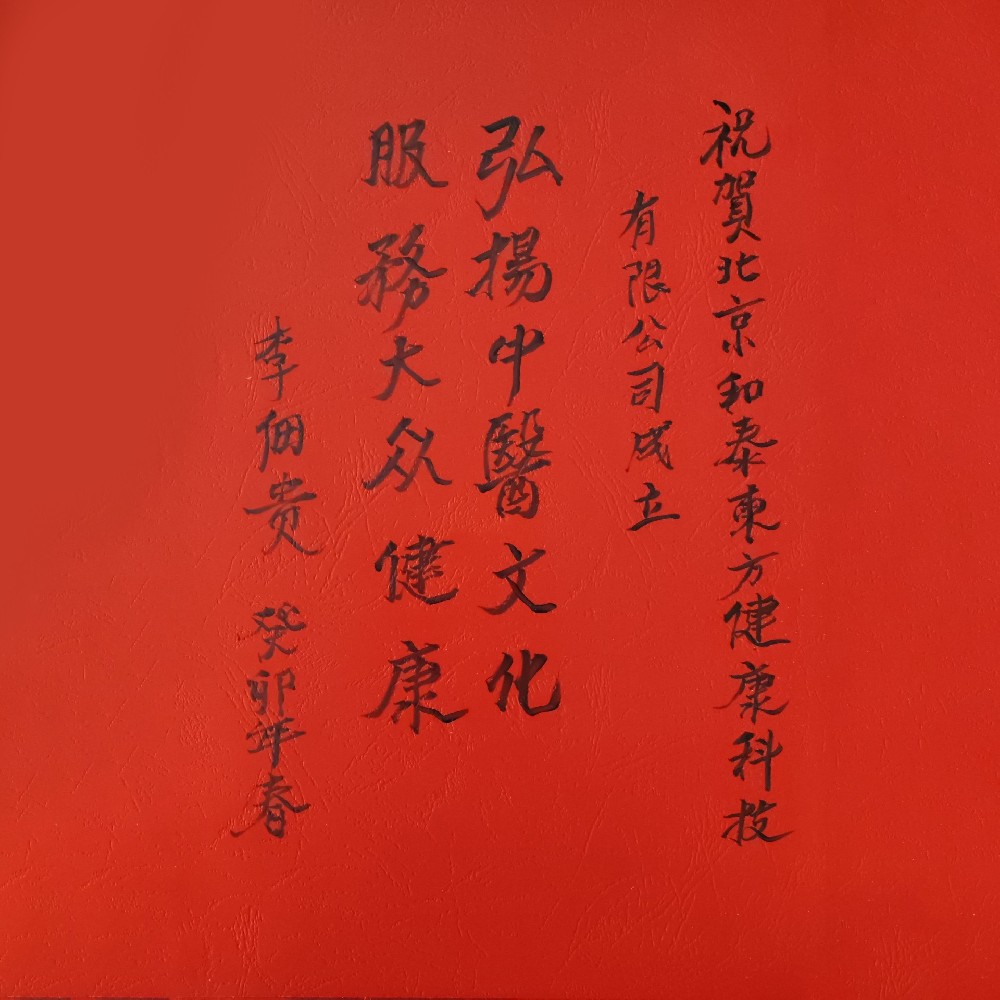 祝賀北京和泰東方健康科技
有限公司成立
弘揚中醫文化
服務大众健康
李佃贵 癸卯年春